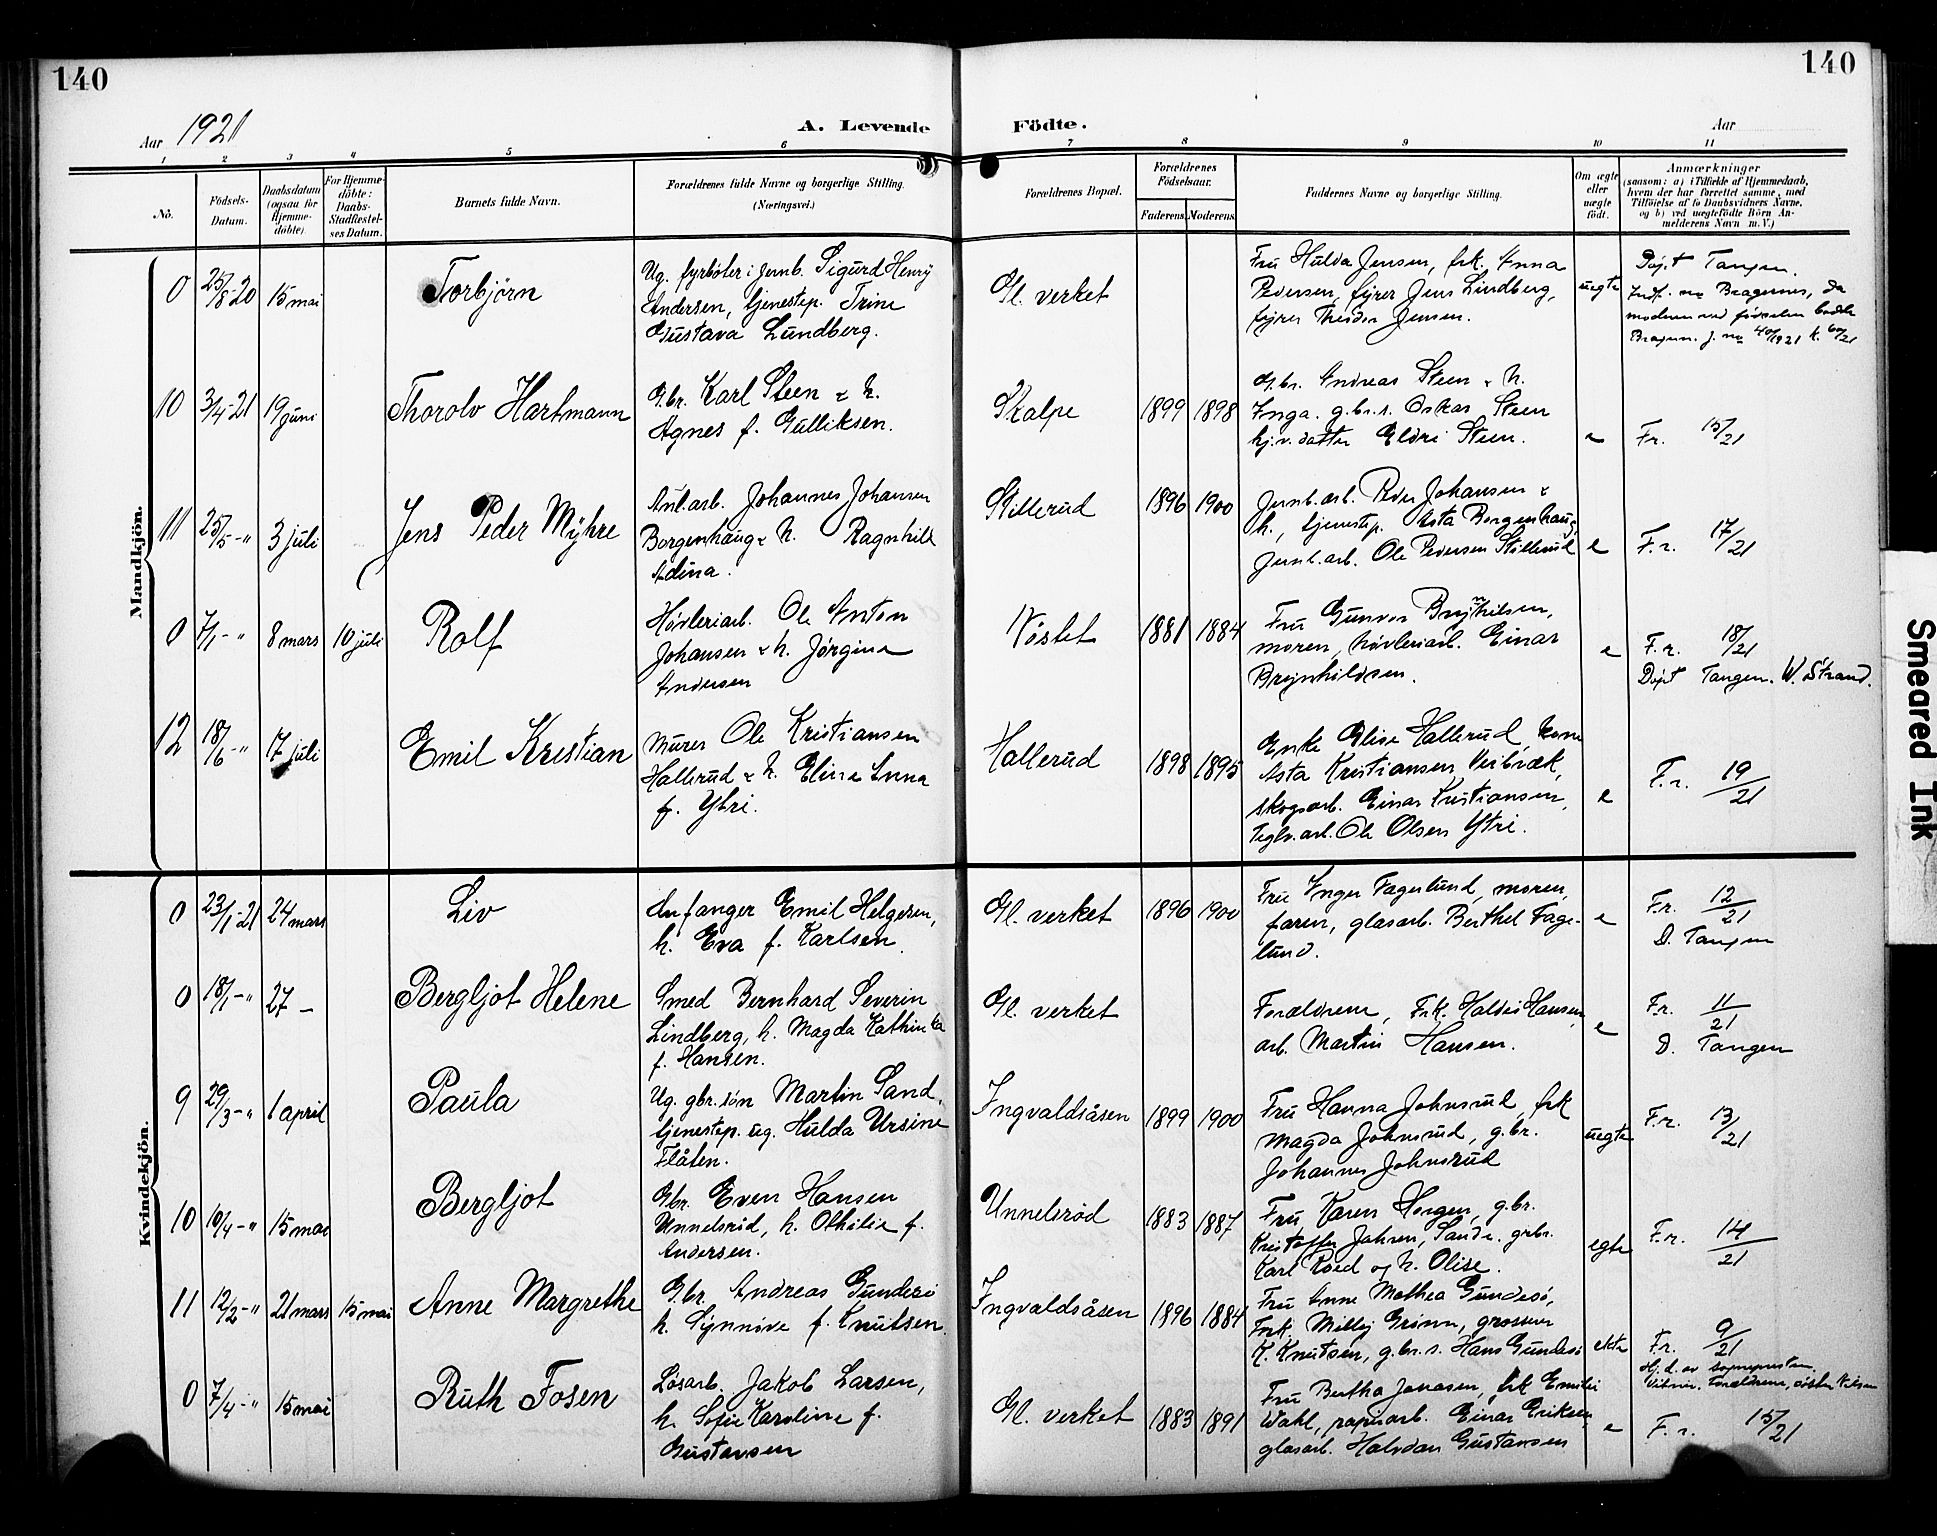 140
140
Aar 1921
A. Levende
Födte.
Aar
1 2 3 4 5 6 7 8 9 10 11
No.
Födsels-
Datum.
Daabsdatum
(ogsaa for
Hjemme-
döbte).
For Hjemme-
döbte:
Daabs-
Stadfæstel-
ses Datum.
Barnets fulde Navn.
Forældrenes fulde Navne og borgerlige Stilling.
(Næringsvei.)
Forældrenes Bopæl.
Forældrenes
Födselsaar.
Faderens. Moderens.
Faddernes Navne og borgerlige Stilling.
Om ægte
eller
uægte
født.
Anmærkninger
(saasom: a) i Tilfælde af Hjemmedaab,
hvem der har forrettet samme, med
Tilföielse af to Daabsvidners Navne,
og b) ved uægtefödte Börn An-
melderens Navn m. V.)
Mandkjön.
0 25/8-20 15 mai
Torbjörn
Ug. fyrböter i jernb. Sigurd Henry
Andersen, tjenestep. Trine
Gustava Lundberg.
Gl. verket
Fru Hulda Jensen, frk. Anna
Pedersen, fyrer Jens Lindberg,
fyrer Theodor Jensen.
uegte
Döpt Tangen.
Indf. no Bragernes, da
moderen ved födselen bodde
Bragern. j. no 40/1921 k. 60/21
10 3/4-21 19 juni
Thorolv Hartmann
Gbr. Karl Steen & h.
Agnes f. Gulliksen.
Skalpe
1899 1898
G.br. Andreas Steen & h.
Inga. g.br.s. Oskar Steen
hj.v. datter Eldri Steen.
e
Fr. 15/21
11 25/5-" 3 juli
Jens Peder Myhre
Anl.arb. Johannes Johansen
Borgenhaug & h. Ragnhild
Adina.
Stillerud
1896 1900
Jernb.arb. Peder Johansen &
h., tjenestep. Asta Borgenhaug,
Jernb.arb. Ole Pedersen Stillerud
e
F.r. 17/21
0 7/1-" 8 mars 10 juli
Rolf
Hövleriarb. Ole Anton
Johansen & h. Jörgine
Andersen
Nöstet
1881 1884
Fru Gunvor Brynhilsen,
moren, hövleriarb. Einar
Brynhildsen.
e
F.r. 18/21
Döpt Tangen. W. Strand.
12 18/6-" 17 juli
Emil Kristian
Murer Ole Kristiansen
Hallerud & h. Eline Anna
f. Ytri.
Hallerud
1898 1895
Enke Elise Hallerud, kone
Asta Kristiansen Veibræk,
skogsarb. Einar Kristiansen,
teglv.arb. Ole Olsen Ytri.
e
F.r. 19/21
Kvindekjön.
0 23/1-21 24 mars
Liv
Anfanger Emil Helgesen,
h. Eva f. Karlsen.
Gl. verket
1896 1900
Fru Inger Fagerlund, moren,
faren, glasarb. Berthel Fage-
lund.
e
F.r. 12/21
D. Tangen
0 18/1-" 27 -
Bergljot Helene
Smed Bernhard Severin
Lindberg, h. Magda Kathinka
f. Hansen.
Gl. verket
Forældrene, Frk. Haldis Hansen,
arb. Martin Hansen.
e
F.r. 11/21
D. Tangen
9 29/3-" 1 april
Paula
Ug. gbr.sön Martin Sand,
tjenestep. ug. Hulda Ursine
Flåten.
Ingvaldsåsen
1899 1900
Fru Hanna Johnsrud, frk
Magda Johnsrud, g.br.
Johannes Johnsrud
uegte
F.r. 13/21
10 10/4-" 15 mai
Bergljot
Gbr. Even Hansen
Unnelsröd, h. Othilie f.
Andersen.
Unnelsröd
1883 1887
Fru Karen Horgen, g.br.
Kristoffer Jahren, Sande. grbr.
Karl Roed og h. Olise.
egte
F.r. 14/21
11 12/2-" 21 mars 15 mai
Anne Margrethe
Gbr. Andreas Gundesö
h. Synnöve f. Knutsen.
Ingvaldsåsen
1896 1884
Fru Anne Mathea Gundesö,
Frk. Milly Grönn, grosserer
K. Knutsen, g.br.s. Hans Gundesö
ekte
Fr. 9/21
Hj.d. av sogneprest
Vitner. Forældrene, söster Nilsen
0 7/4-" 15 mai
Ruth Fosen
Lösarb. Jakob Larsen,
h. Sofie Karoline f.
Gustavsen
Gl. verket
1883 1891
Fru Bertha Jonasen, frk Emilie
Wahl, papirarb. Einar Eriksen,
glasarb. Halvdan Gustavsen
e
F.r. 15/21
Smeared Ink